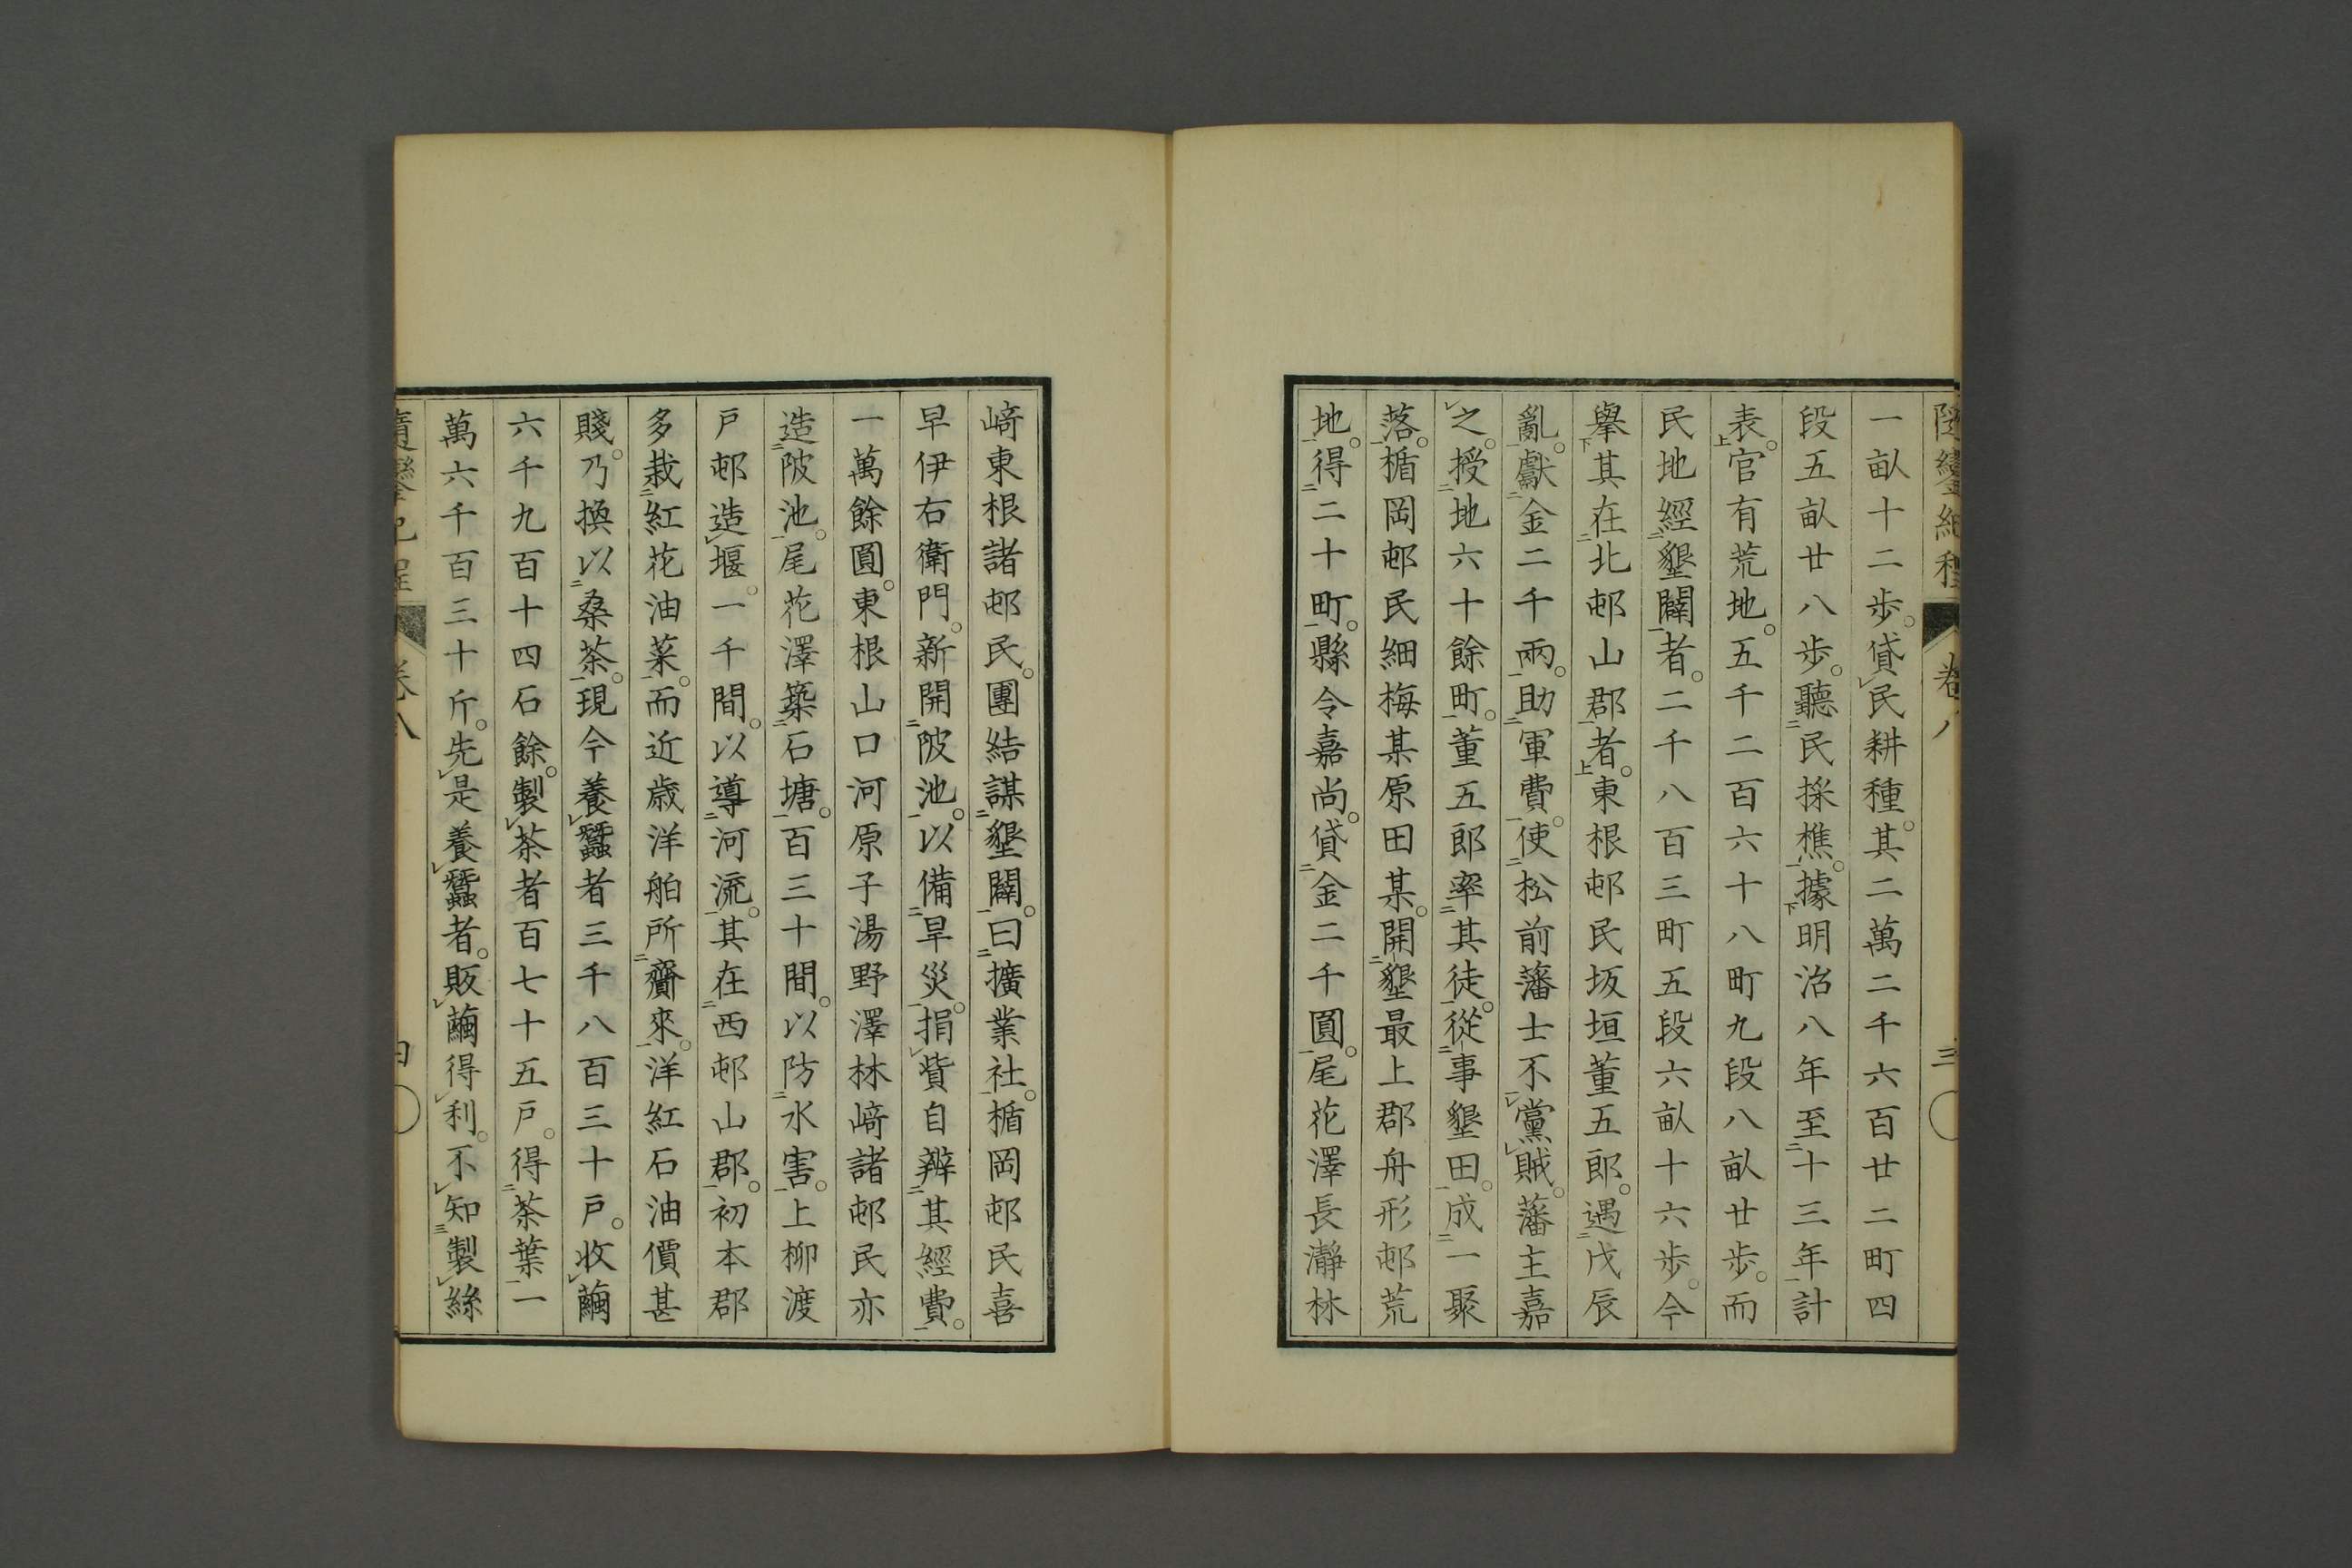 一畝十二歩。貸民耕種。其二萬二千六百廿二町四
段五畝廿八歩。聽民採樵。據明治八年至十三年計
表。官有荒地。五千二百六十八町九段八畝廿歩。而
民地經墾闢者。二千八百三町五段六畝十六歩。今
擧其在北邨山郡者。東根邨民坂垣董五郎。遇戊辰
亂。獻金二千兩。助軍費。使松前藩士不黨賊。藩主嘉
之。授地六十餘町。董五郎率其徒。從事墾田。成一聚
落。楯岡邨民細梅某原田某。開墾最上郡舟形邨荒
地。得二十町。縣令嘉尚。貸金二千圓。尾花澤長瀞林
﨑東根諸邨民。團結謀墾闢。曰擴業社。楯岡邨民喜
早伊右衛門。新開陂池。以備旱災。捐貲自辨其經費。
一萬餘圓。東根山口河原子湯野澤林﨑諸邨民亦
造陂池。尾花澤築石塘。百三十間。以防水害。上柳渡
戸邨造堰。一千間。以導河流。其在西邨山郡。初本郡
多栽紅花油菜。而近歳洋舶所齎來。洋紅石油價甚
賤。乃換以桑茶。現今養蠶者三千八百三十戸。收繭
六千九百十四石餘。製茶者百七十五戸。得茶葉一
萬六千百三十斤。先是養蠶者。販繭得利。不知製絲
卷八